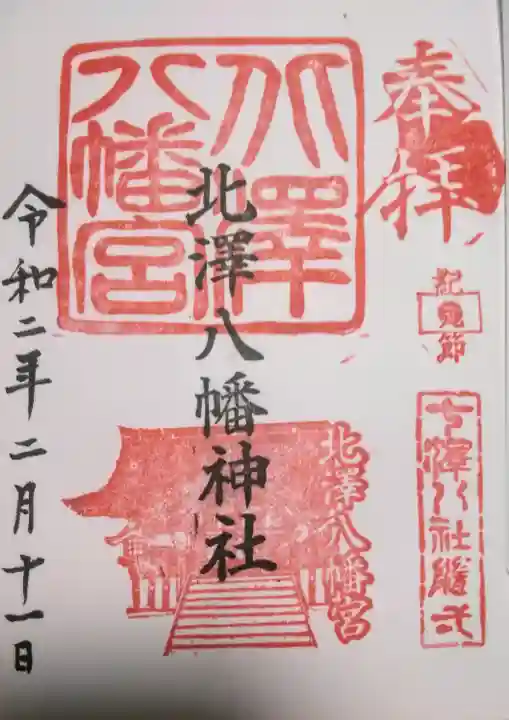 奉拝
紀元節
七澤八社隨弌
北澤
八幡宮
北澤八幡神社
北澤八幡宮
令和二年二月十一日